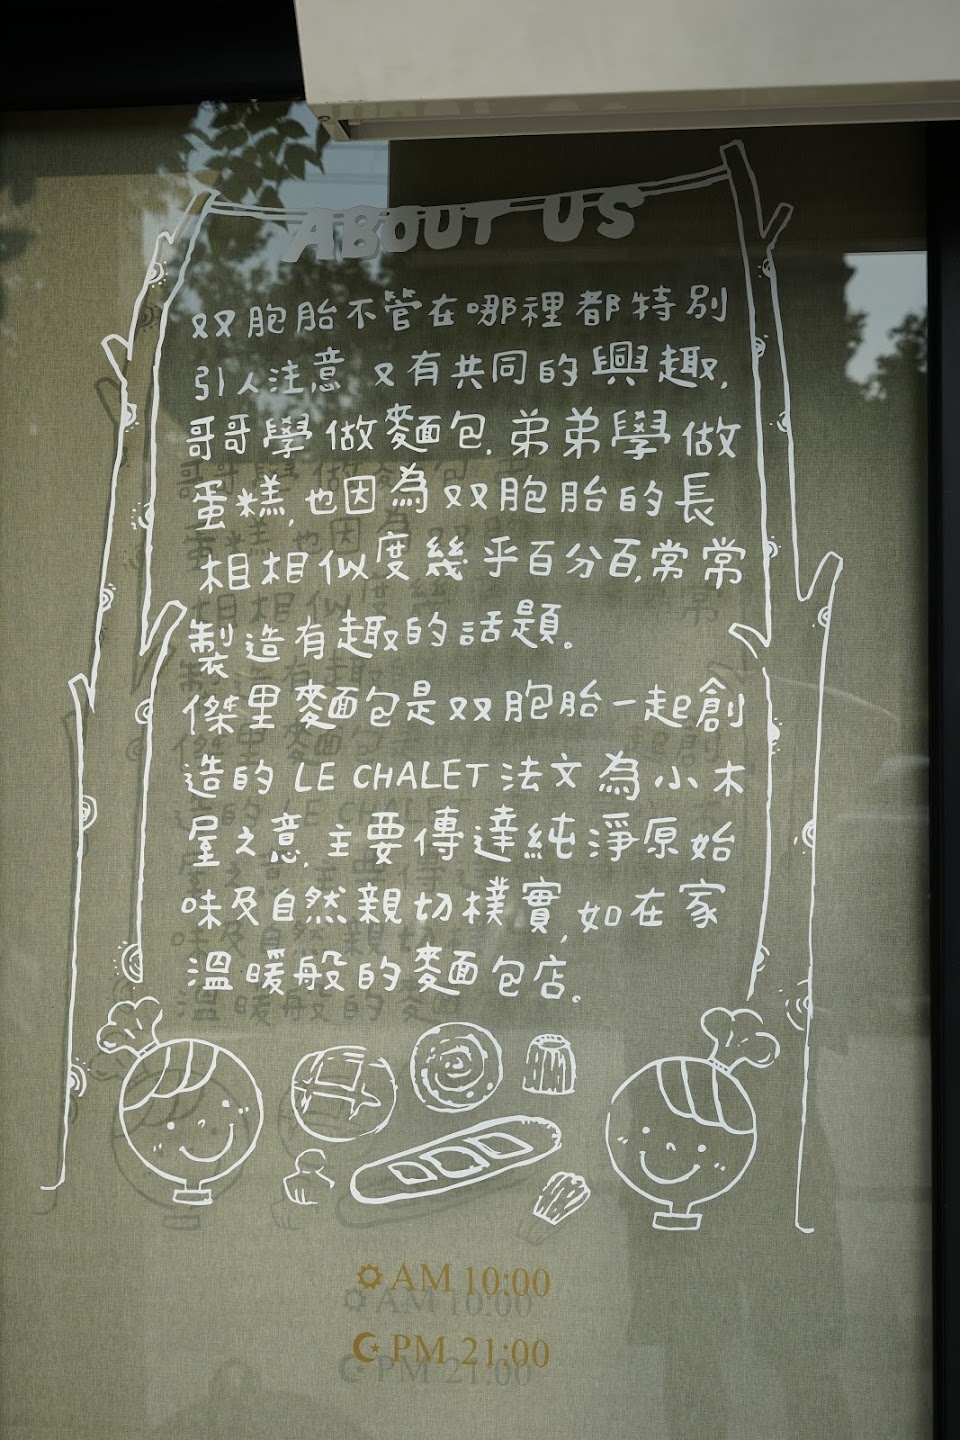 ABOUT US
双胞胎不管在哪裡都特別
引人注意又有共同的興趣,
哥哥學做麵包,弟弟學做
蛋糕,也因為双胞胎的長
相相似度幾乎百分百,常常
製造有趣的話題。
傑里麵包是双胞胎一起創
造的 LE CHALET 法文為小木
屋之意,主要傳達純淨原始
味及自然親切樸實,如在家
溫暖般的麵包店。
AM 10:00
PM 21:00